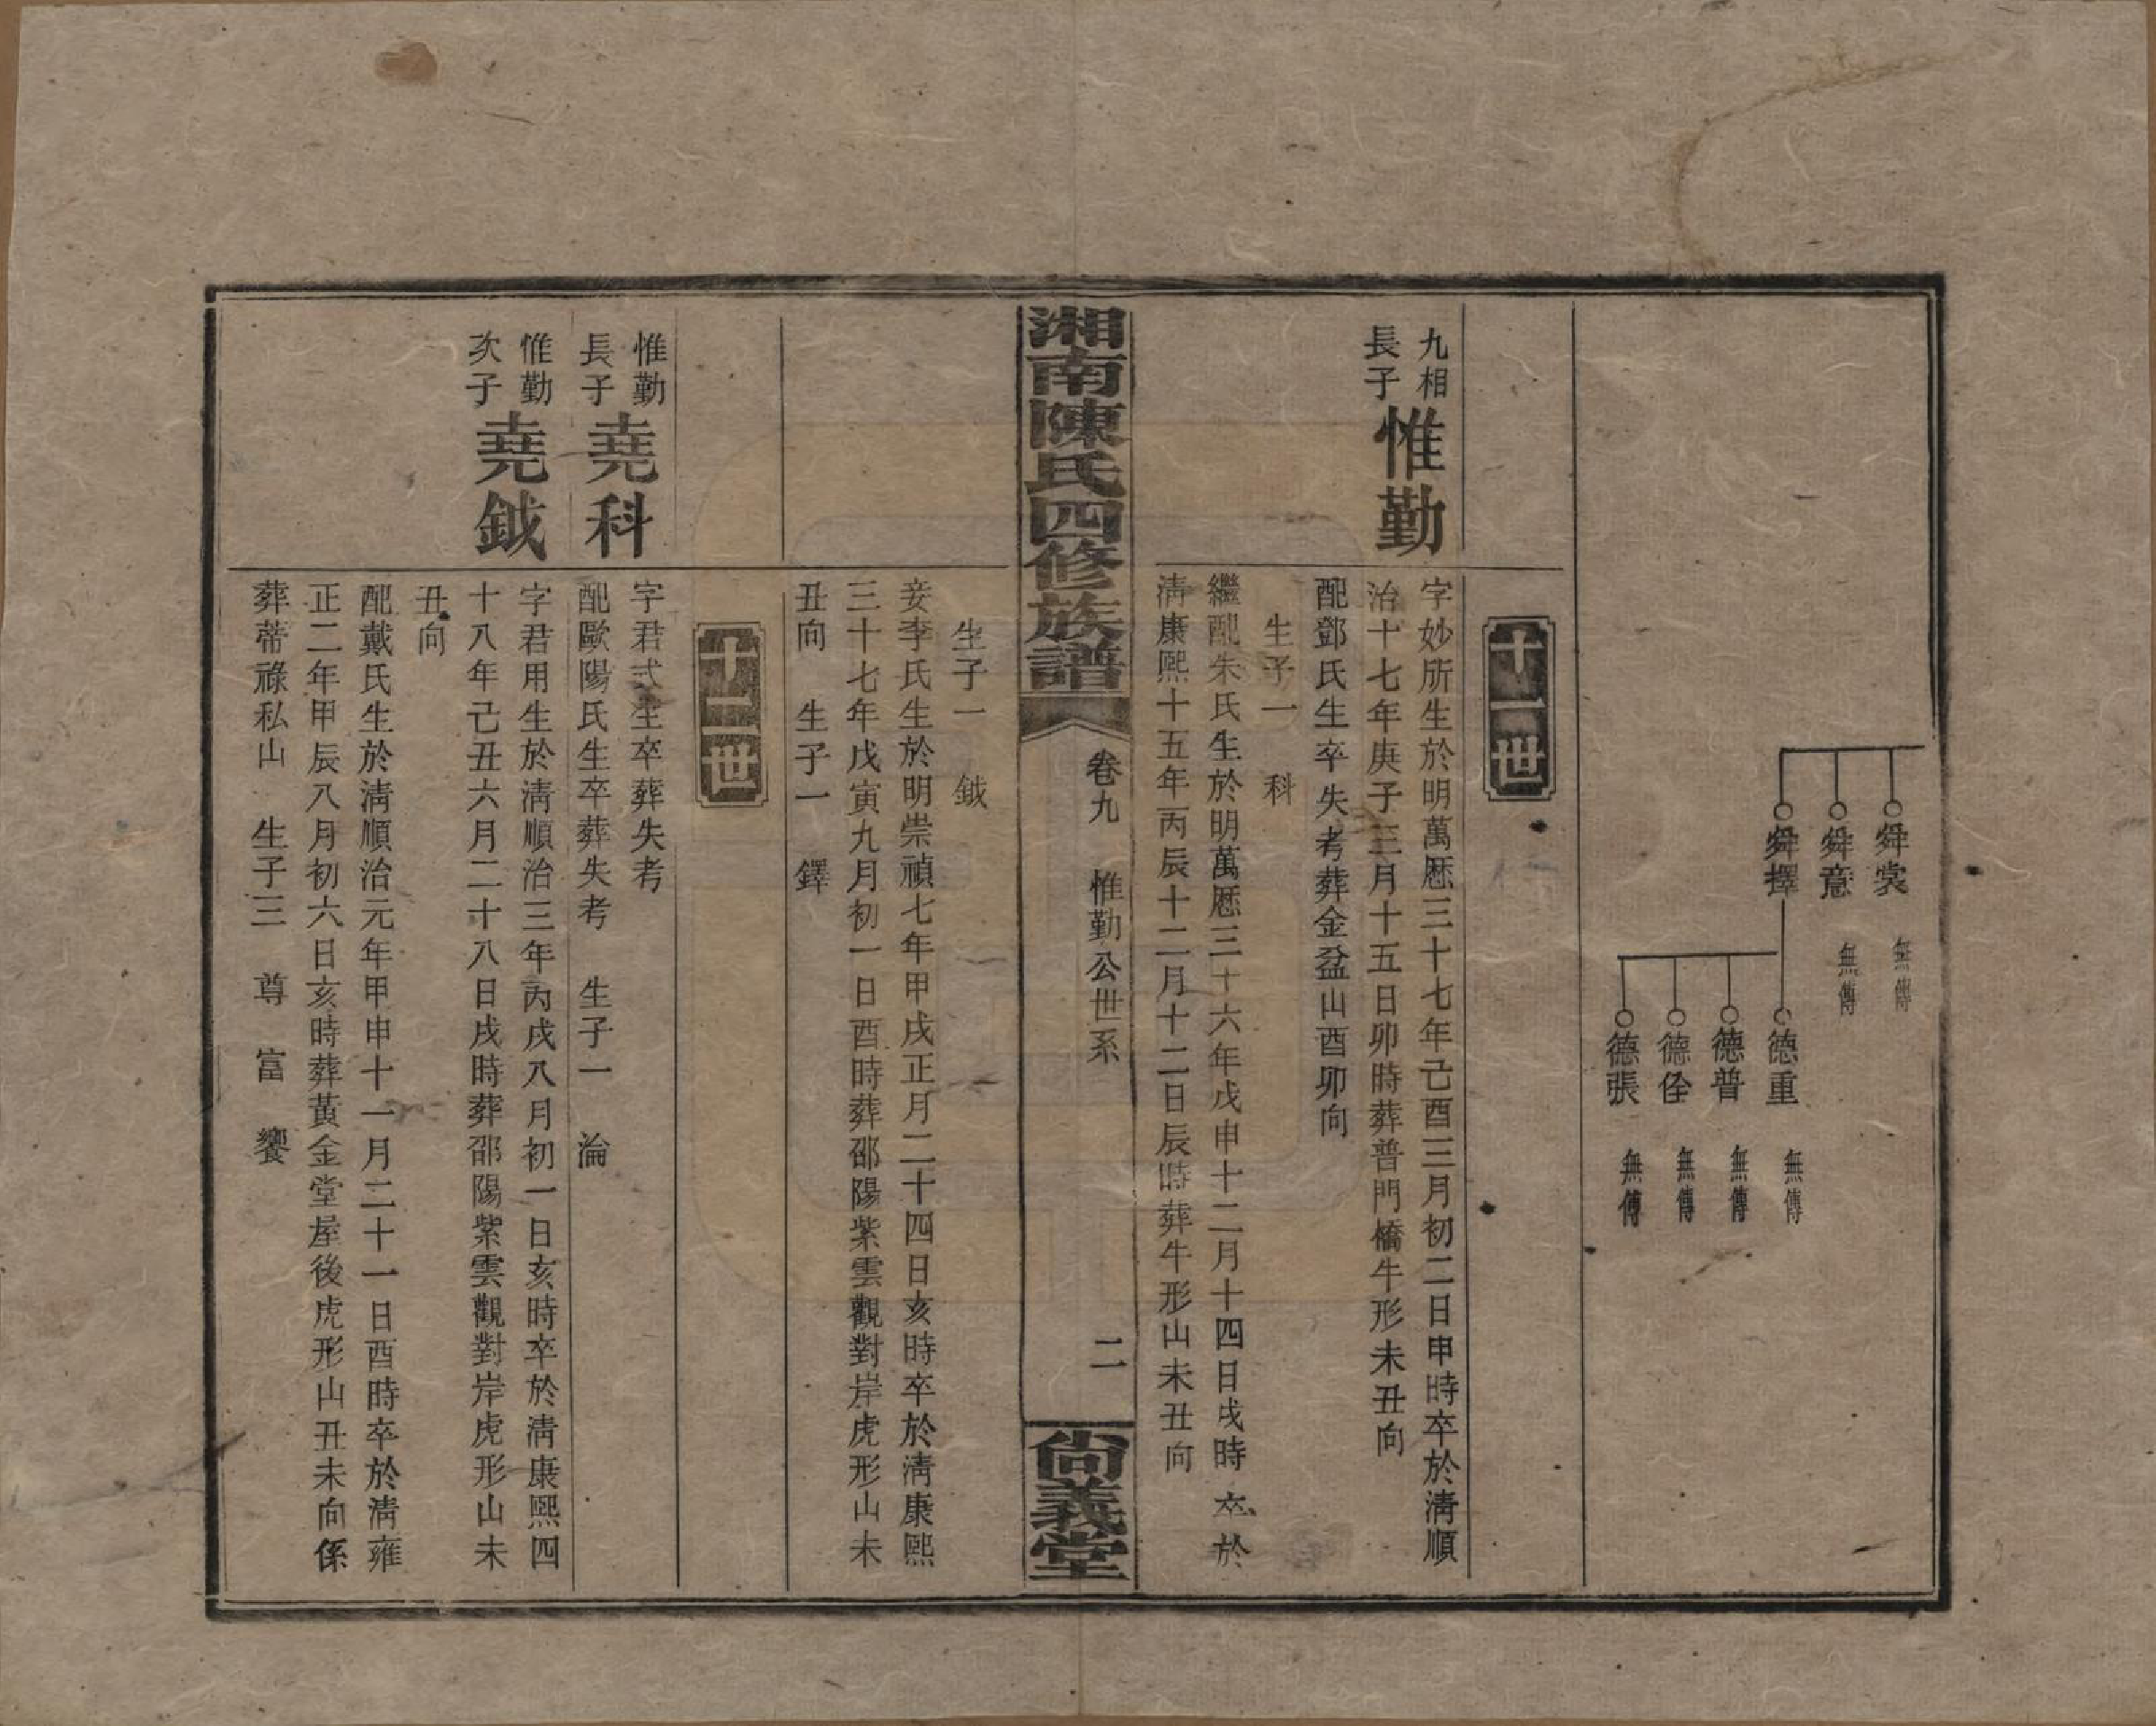 舜裳 無傳
舜意 無傳
舜擇
德重 無傳
德普 無傳
德佺 無傳
德張 無傳
十一世
九相
長子
惟勤
字妙所生於明萬厯三十七年己酉三月初二日申時卒於淸順
治十七年庚子三月十五日卯時葬普門橋牛形未丑向
配鄧氏生卒失考葬金盆山酉卯向
生子一 科
繼配朱氏生於明萬厯三十六年戊申十二月十四日戌時卒於
淸康熙十五年丙辰十二月十二日辰時葬牛形山未丑向
湘南陳氏四修族譜
卷九 惟勤公世系
二
尙義堂
生子一 鉞
妾李氏生於明崇禎七年甲戌正月二十四日亥時卒於淸康熙
三十七年戊寅九月初一日酉時葬邵陽紫雲觀對岸虎形山未
丑向 生子一 鐸
十二世
惟勤
長子
堯科
字君弍生卒葬失考
配歐陽氏生卒葬失考 生子一 淪
惟勤
次子
堯鉞
字君用生於淸順治三年丙戌八月初一日亥時卒於淸康熙四
十八年己丑六月二十八日戌時葬邵陽紫雲觀對岸虎形山未
丑向
配戴氏生於淸順治元年甲申十一月二十一日酉時卒於淸雍
正二年甲辰八月初六日亥時葬黃金堂屋後虎形山丑未向係
葬蒂祿私山 生子三 尊 富 饗